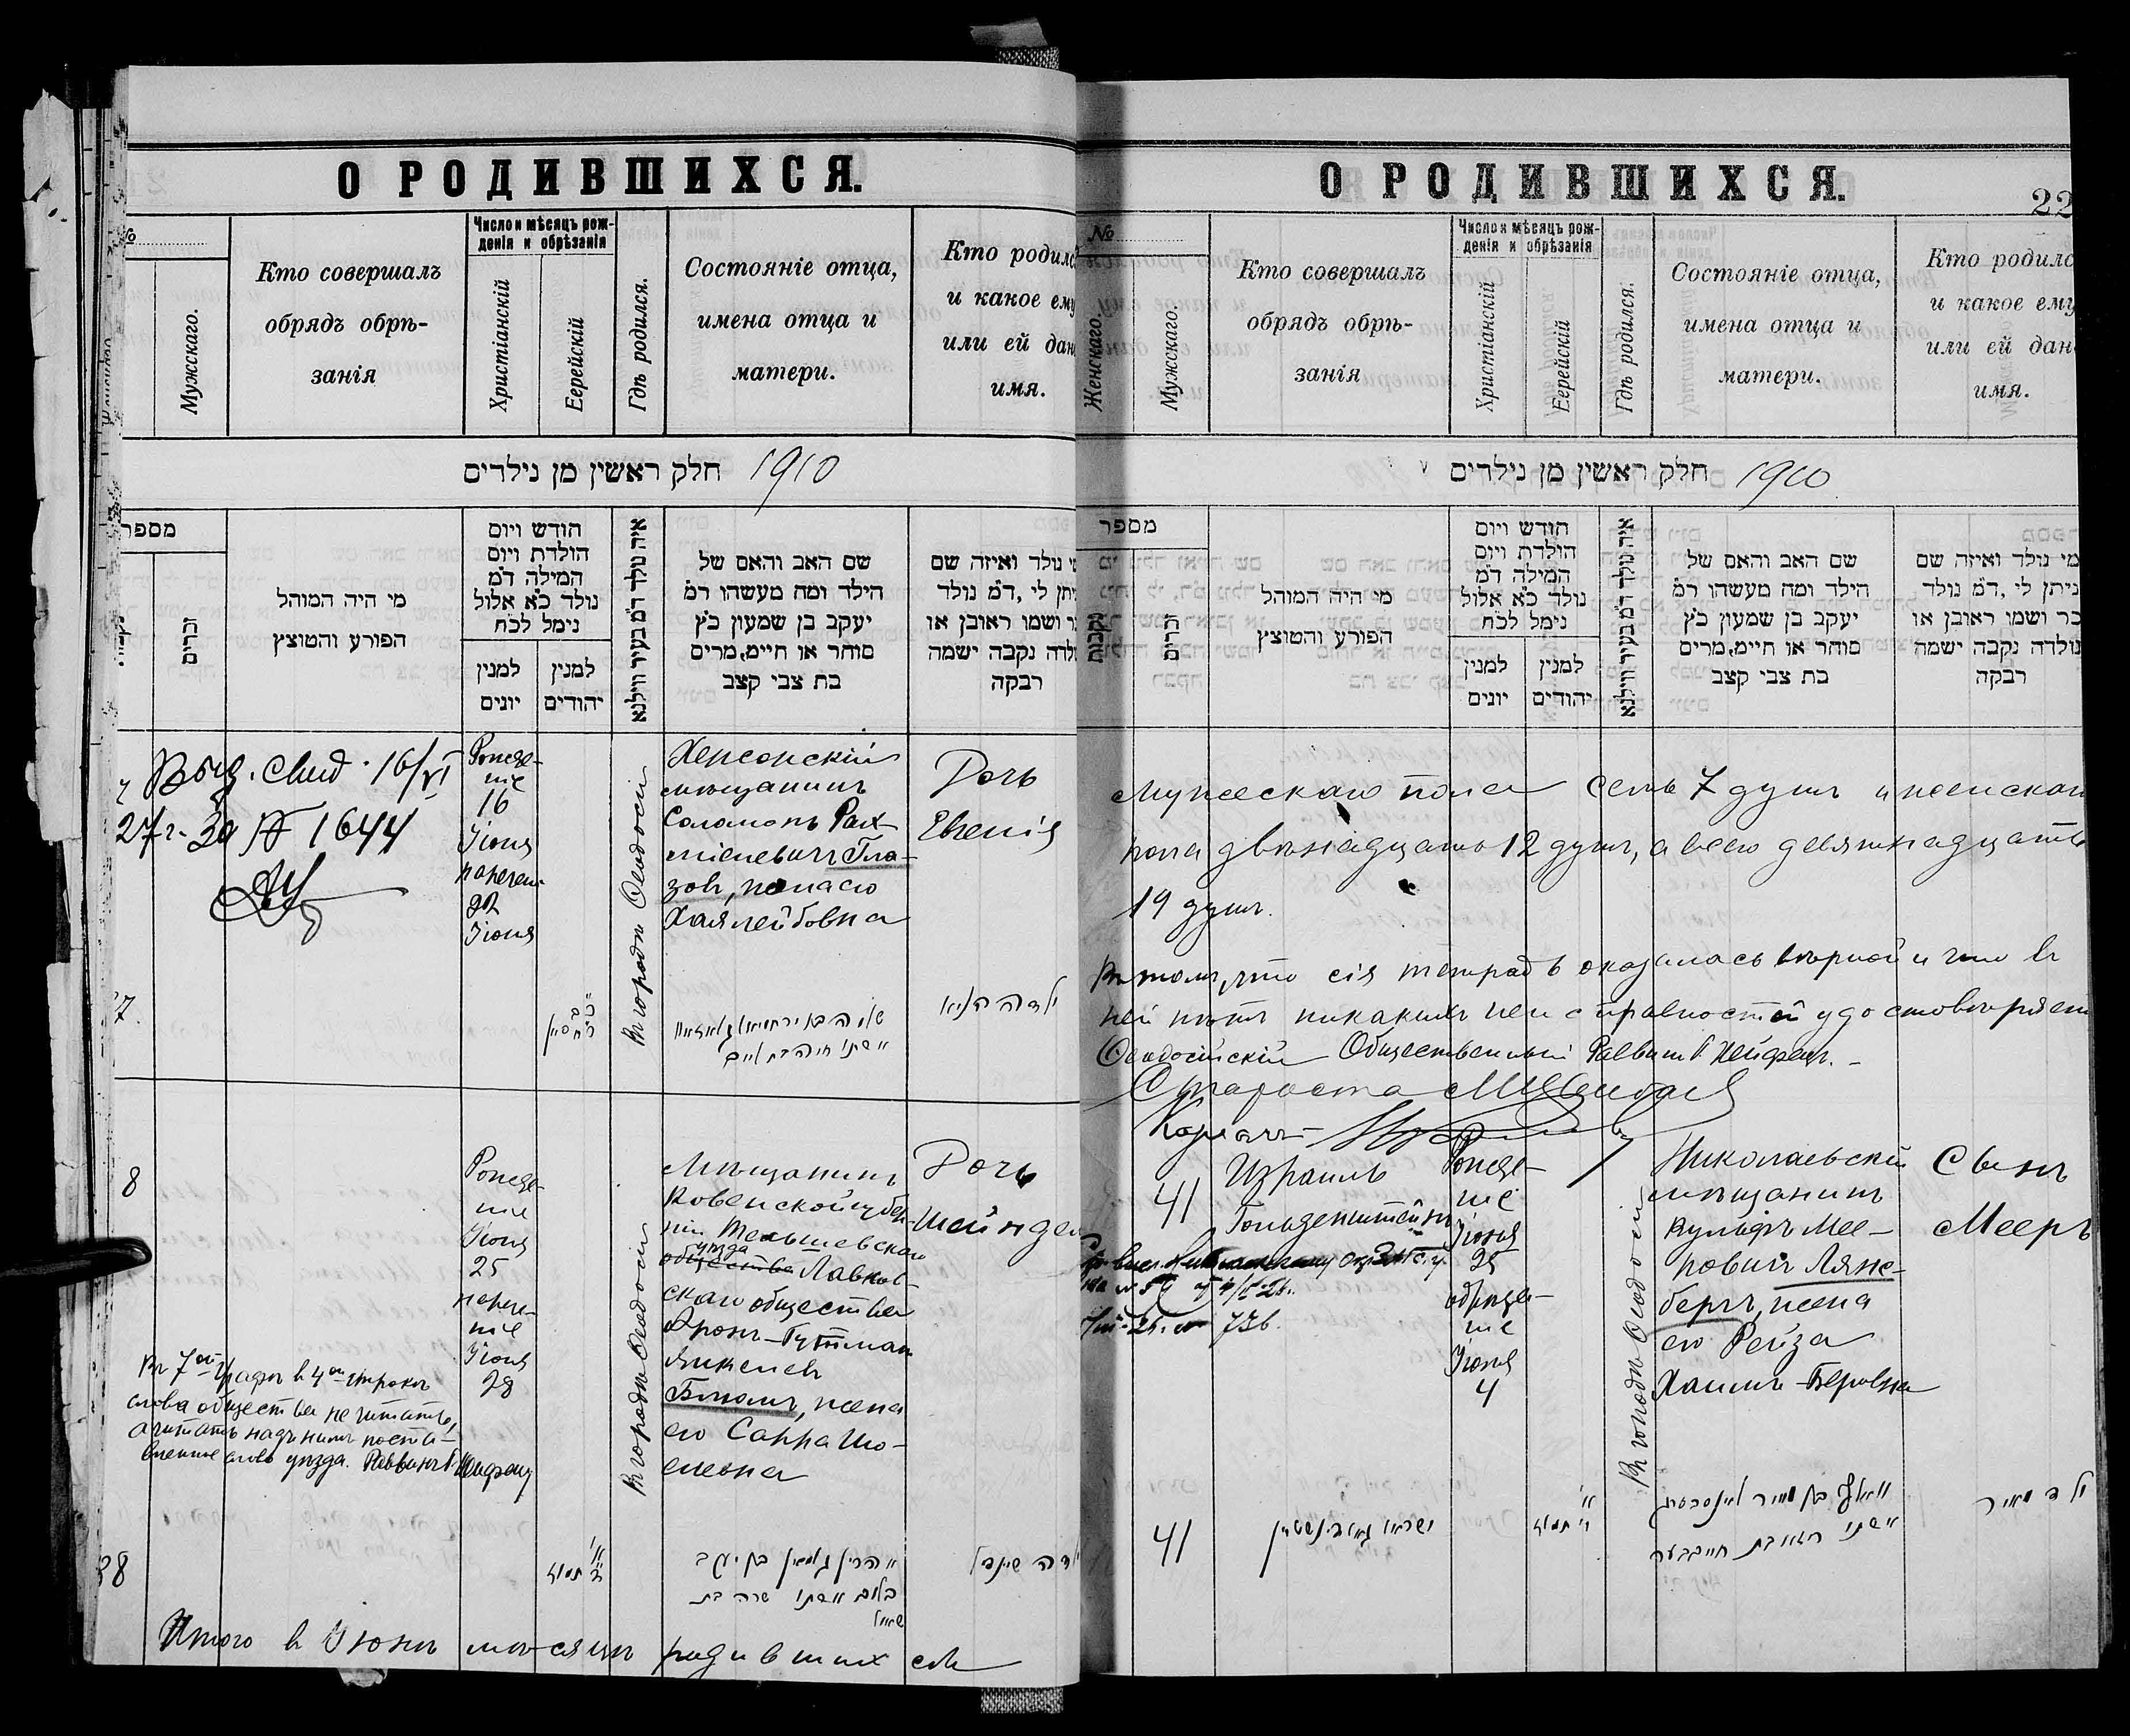 О РОДИВШИХСЯ.
№
Мужскаго.
Кто совершалъ
обрядъ обрѣ-
занія
Число и мѣсяцъ рож-
денія и обрѣзанія
Христіанскій
Еерейскій
Гдѣ родился.
Состояніе отца,
имена отца и
матери.
Кто родилс
и какое ему
или ей дан
имя.
חלק ראשין מן נילדים 1910
מספר
זכרים
מי היה המוהל
הפורע והטוצץ
הודש ויום
הולדת ויום
המילה ד״מ
נולד כ״א אלול
נימל לכ״ח
למנין
יונים
למנין
יהודים
איה נולד ד״מ בעיר ווילנא
שם האב והאם של
הילד ומה מעשהו ד״מ
יעקב בן שמעון כ״ץ
סוחר או חיים, מרים
בת צבי קצב
נולד ואיזה שם
יתן לי, ד״מ נולד
ר ושמו ראובן או
ולדה נקבה ישמה
רבקה
Выд. свид. 16/VI
27 г. за № 1644
Рожде-
ніе
16
Іюня
наречен.
22
Іюня
Въ городѣ Ѳеодосіи
Херсонскій
мѣщанинъ
Соломонъ Рах-
міелевичъ Гла-
зовъ, жена его
Хая Лейбовна
Дочь
Евгенія
7.
8
Рожде-
ніе
Іюня
25
нарече-
ніе
Іюня
28
Въ городѣ Ѳеодосіи
Мѣщанинъ
Ковенской губер-
ніи Тельшевскаго
уѣзда
общества Лавков-
скаго общества
Аронъ-Гутман
Янкелев
Блюмъ, жена
его Сарра Шо-
елевна
Дочь
Шейндел
Въ 7ой графѣ в 4ой строкѣ
слова общества не читать,
а читать надъ нимъ поста-
вленное слово уѣзда. Раввинъ Г. Нейфельд
38
ילדה שיינדל
אהרן גוטמן בן יעקב
בלום אשתו שרה בת
Итого въ Іюнѣ мѣсяцѣ родившихся
О РОДИВШИХСЯ.
22
№
Женскаго.
Мужскаго.
Кто совершалъ
обрядъ обрѣ-
занія
Число и мѣсяцъ рож-
денія и обрѣзанія
Христіанскій
Еерейскій
Гдѣ родился.
Состояніе отца,
имена отца и
матери.
Кто родилс
и какое ему
или ей дан
имя.
חלק ראשין מן נילדים 1910
מספר
נקבות
זכרים
מי היה המוהל
הפורע והטוצץ
הודש ויום
הולדת ויום
המילה ד״מ
נולד כ״א אלול
נימל לכ״ח
למנין
יונים
למנין
יהודים
איה נולד ד״מ בעיר ווילנא
שם האב והאם של
הילד ומה מעשהו ד״מ
יעקב בן שמעון כ״ץ
סוחר או חיים, מרים
בת צבי קצב
מי נולד ואיזה שם
ניתן לי, ד״מ נולד
כר ושמו ראובן או
נולדה נקבה ישמה
רבקה
Мужескаго пола семь 7 душъ и женскаго
пола двѣнадцать 12 душъ, а всего девятнадцать
19 душъ.
Въ томъ, что сія тетрадь оказалась вѣрной и что въ
ней нѣтъ никакихъ неисправностей удостовѣряетъ
Ѳеодосійскій Общественный Раввинъ Г. Нейфельд.
Староста
41
Израиль
Гольденштейнъ
Рожде-
ніе
Іюня
25
обрѣза-
ніе
Іюля
4
Въ городѣ Ѳеодосіи
Николаевскій
мѣщанинъ
Вульфъ Мее-
ровичъ Лянс-
бергъ, жена
его Рейза
Хаимъ-Беровна
Сынъ
Мееръ
736.
41
ישראל גאלדינשטיין
ילד מאיר